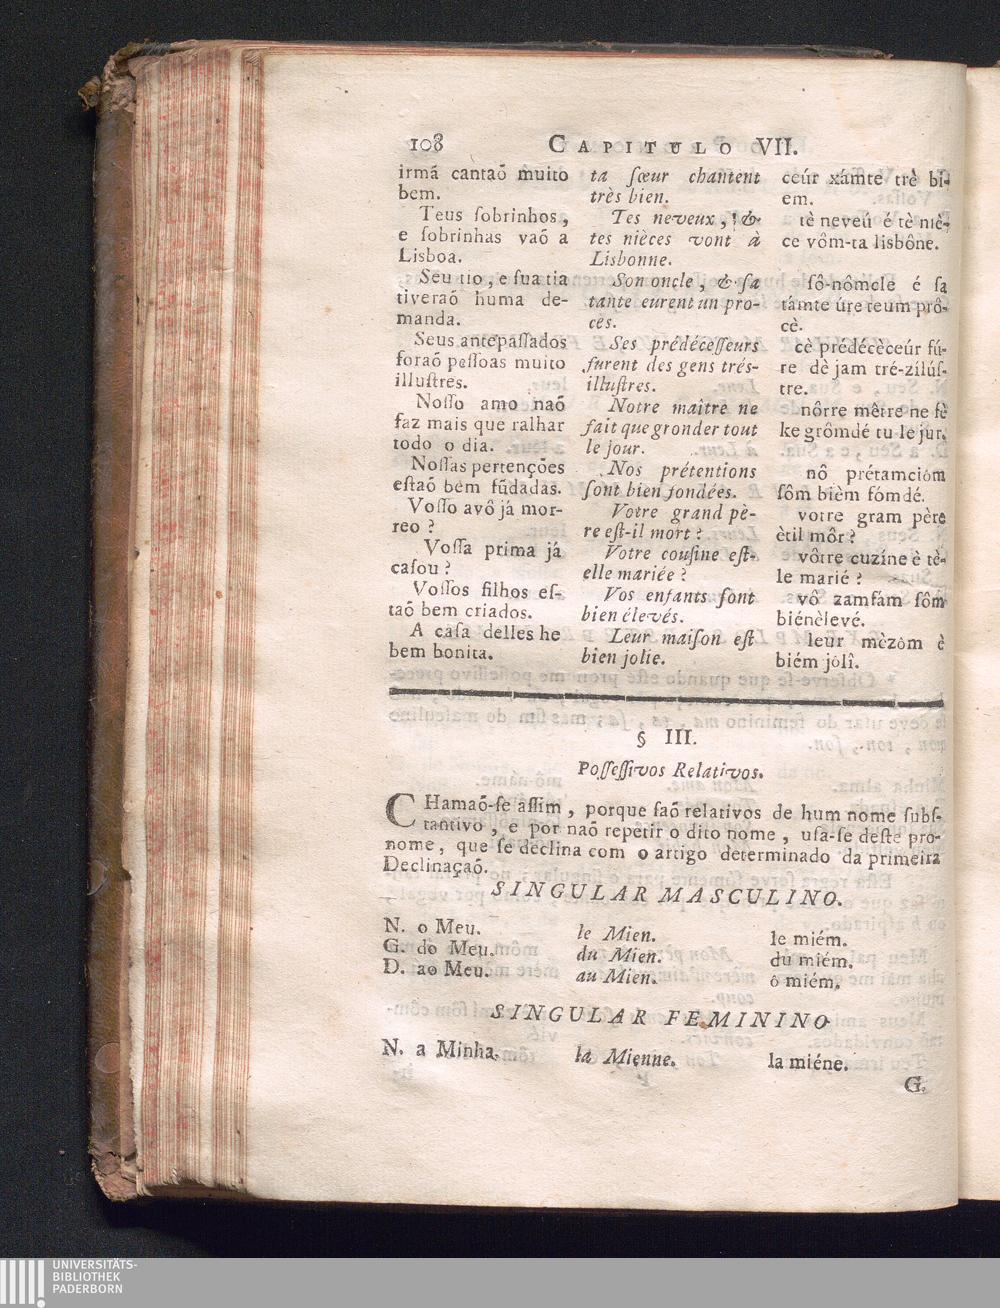 108 CAPITULO VII.
irmã cantaõ muito
bem.
Teus ſobrinhos,
e ſobrinhas vaõ a
Lisboa.
Seu tio, e ſua tia
tiveraõ huma de-
manda.
Seus antepaſſados
foraõ peſſoas muito
illuſtres.
Noſſo amo naõ
faz mais que ralhar
todo o dia.
Noſſas pertençōes
eſtaõ bem fūdadas.
Voſſo avô já mor-
reo ?
Voſſa prima já
caſou ?
Voſſos filhos eſ-
taõ bem criados.
A caſa delles he
bem bonita.
ta ſœur chantent
très bien.
Tes neveux, &
tes nièces vont à
Lisbonne.
Son oncle, & ſa
tante eurent un pro-
cès.
Ses prédéceſſeurs
furent des gens trés-
illuſtres.
Notre maître ne
fait que gronder tout
le jour.
Nos prétentions
ſont bien fondées.
Votre grand pè-
re eſt-il mort ?
Votre couſine eſt-
elle mariée ?
Vos enfants ſont
bien élevés.
Leur maiſon eſt
bien jolie.
ceúr xámte trè bi-
em.
tè neveú é tè niè-
ce vôm-ta lisbône.
ſô-nômcle é ſa
támte úre teum prô-
cè.
cè prédécèceúr fú-
re dè jam tré-zilúſ-
tre.
nôtre mêtre ne fè
ke grômdé tu le jur.
nô prétamcióm
ſôm bièm fómdé.
votre gram père
ètil môr ?
vôtre cuzíne è tè-
le marié ?
vô zamfám ſôm
biénèlevé.
leur mèzôm è
biém jólî.
§ III.
Poſſeſſivos Relativos.
CHamaõ-ſe aſſim, porque ſaõ relativos de hum nome ſubſ-
tantivo, e por naõ repetir o dito nome, uſa-ſe deſte pro-
nome, que ſe declina com o artigo determinado da primeira
Declinaçaõ.
SINGULAR MASCULINO.
N. o Meu. le Mien. le miém.
G. do Meu. du Mien. du miém.
D. ao Meu. au Mien. ô miém.
SINGULAR FEMININO
N. a Minha. la Mienne. la miéne.
G.
UNIVERSITÄTS-
BIBLIOTHEK
PADERBORN